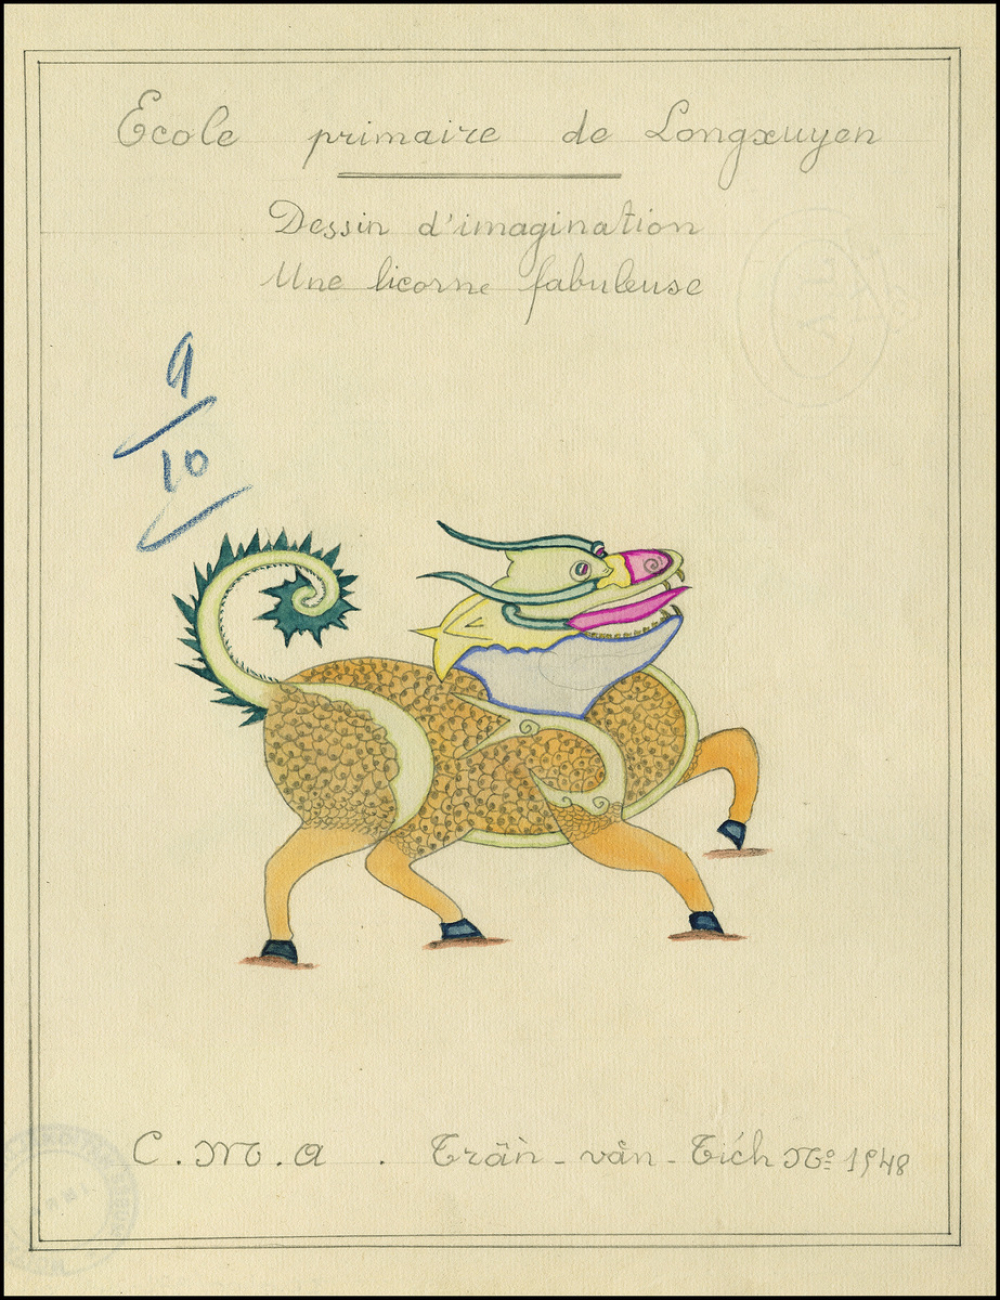 Ecole primaire de Longxuyen
Dessin d'imagination
Une licorne fabuleuse
9
10
C.M.A. Trần-văn-Tích No 1948